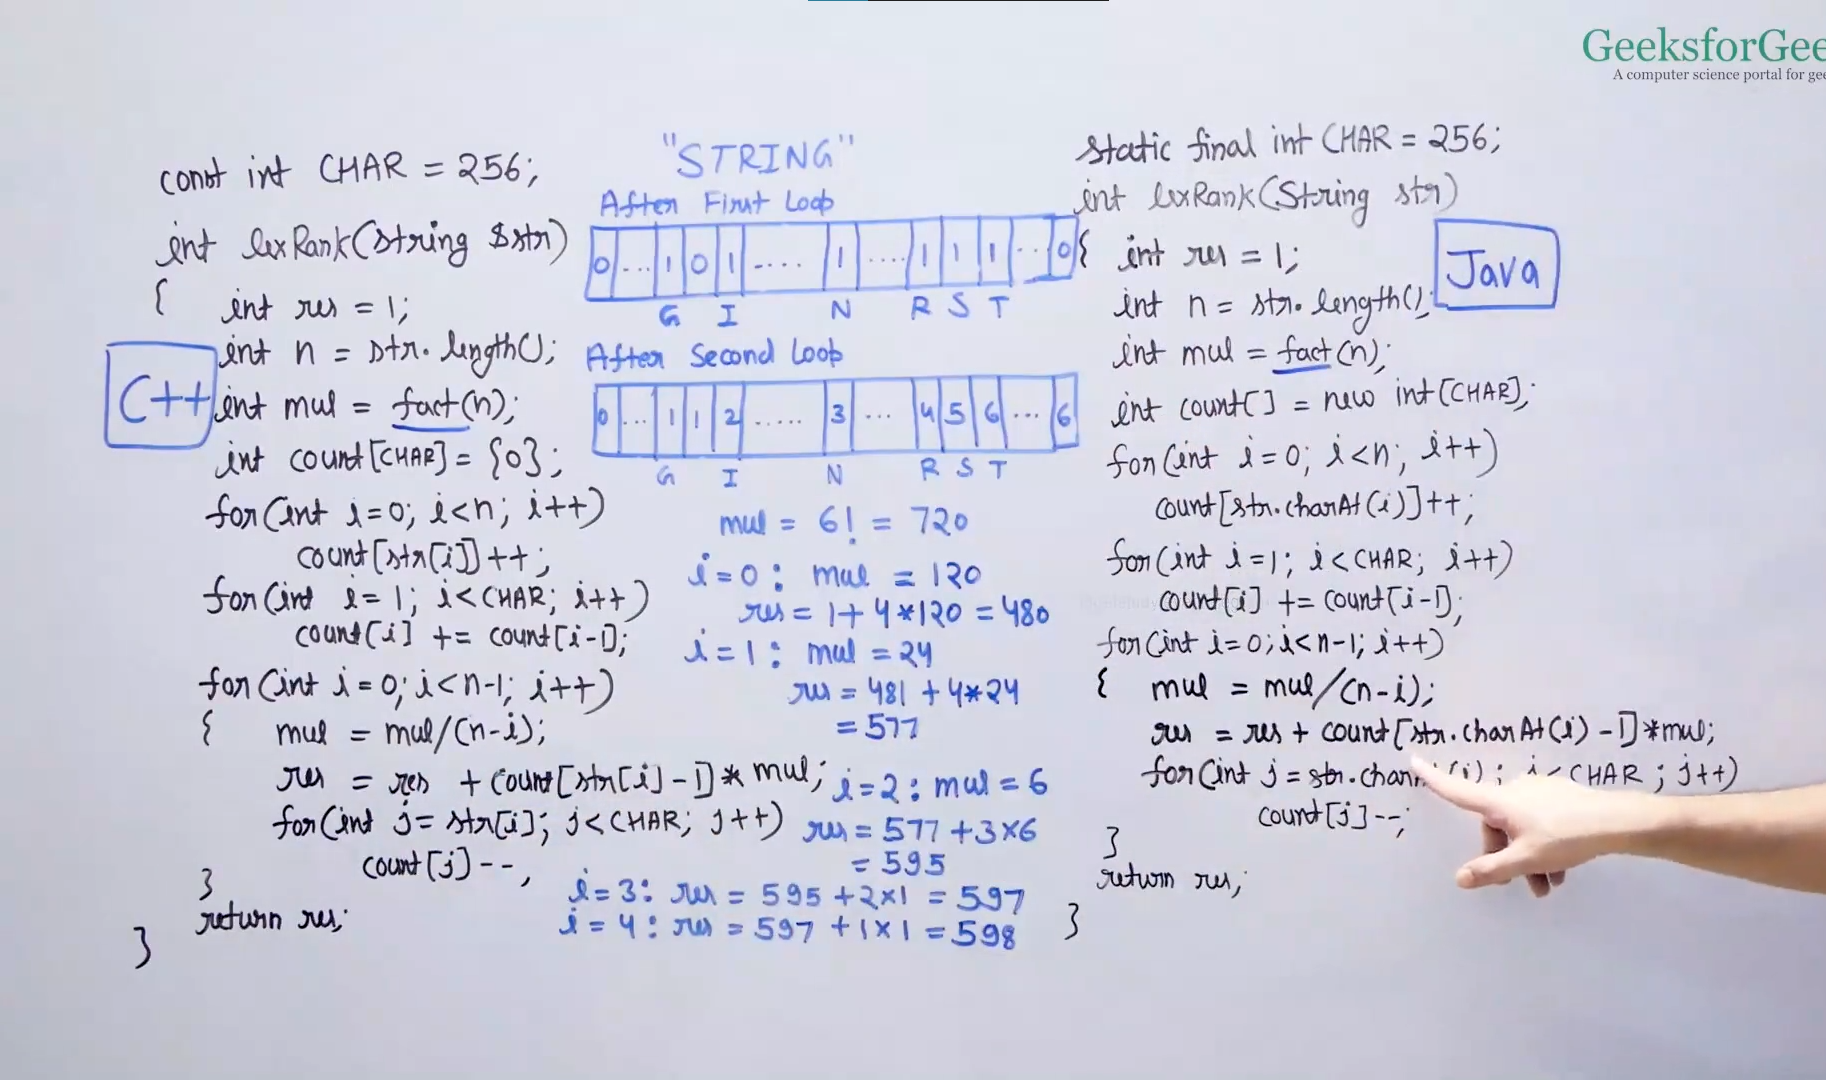 GeeksforGee
A computer science portal for gee
const int CHAR = 256;
int lexRank(string &str)
{ int res = 1;
int n = str.length();
C++
int mul = fact(n);
int count[CHAR] = {0};
for(int i=0; i<n; i++)
count[str[i]]++;
for(int i=1; i<CHAR; i++)
count[i] += count[i-1];
for(int i=0; i<n-1; i++)
{ mul = mul/(n-i);
res = res + count[str[i]-1]* mul;
for(int j= str[i]; j<CHAR; j++)
count[j]--;
}
return res;
}
"STRING"
After First Loop
0 ... 1 0 1 ..... 1 .... 1 1 1 ... 0
G I N R S T
After Second Loop
0 ... 1 1 2 ..... 3 ... 4 5 6 ... 6
G I N R S T
mul = 6! = 720
i=0: mul = 120
res = 1+ 4*120 = 480
i=1: mul = 24
res = 481 + 4*24
= 577
i=2: mul = 6
res = 577 + 3×6
= 595
i=3: res = 595 + 2×1 = 597
i=4: res = 597 + 1×1 = 598
static final int CHAR = 256;
int lexRank(String str)
{ int res = 1;
Java
int n = str.length();
int mul = fact(n);
int count[] = new int[CHAR];
for(int i=0; i<n; i++)
count[str.charAt(i)]++;
for(int i=1; i<CHAR; i++)
count[i] += count[i-1];
for(int i=0; i<n-1; i++)
{ mul = mul/(n-i);
res = res + count[str.charAt(i)-1]*mul;
for(int j = (i); j<CHAR; j++)
count[j]--;
}
return res;
}